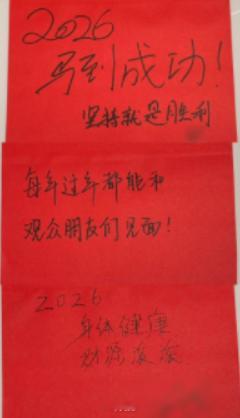 2026
马到成功！
坚持就是胜利
每年过年都能和
观众朋友们见面！
2026
身体健康
财源滚滚